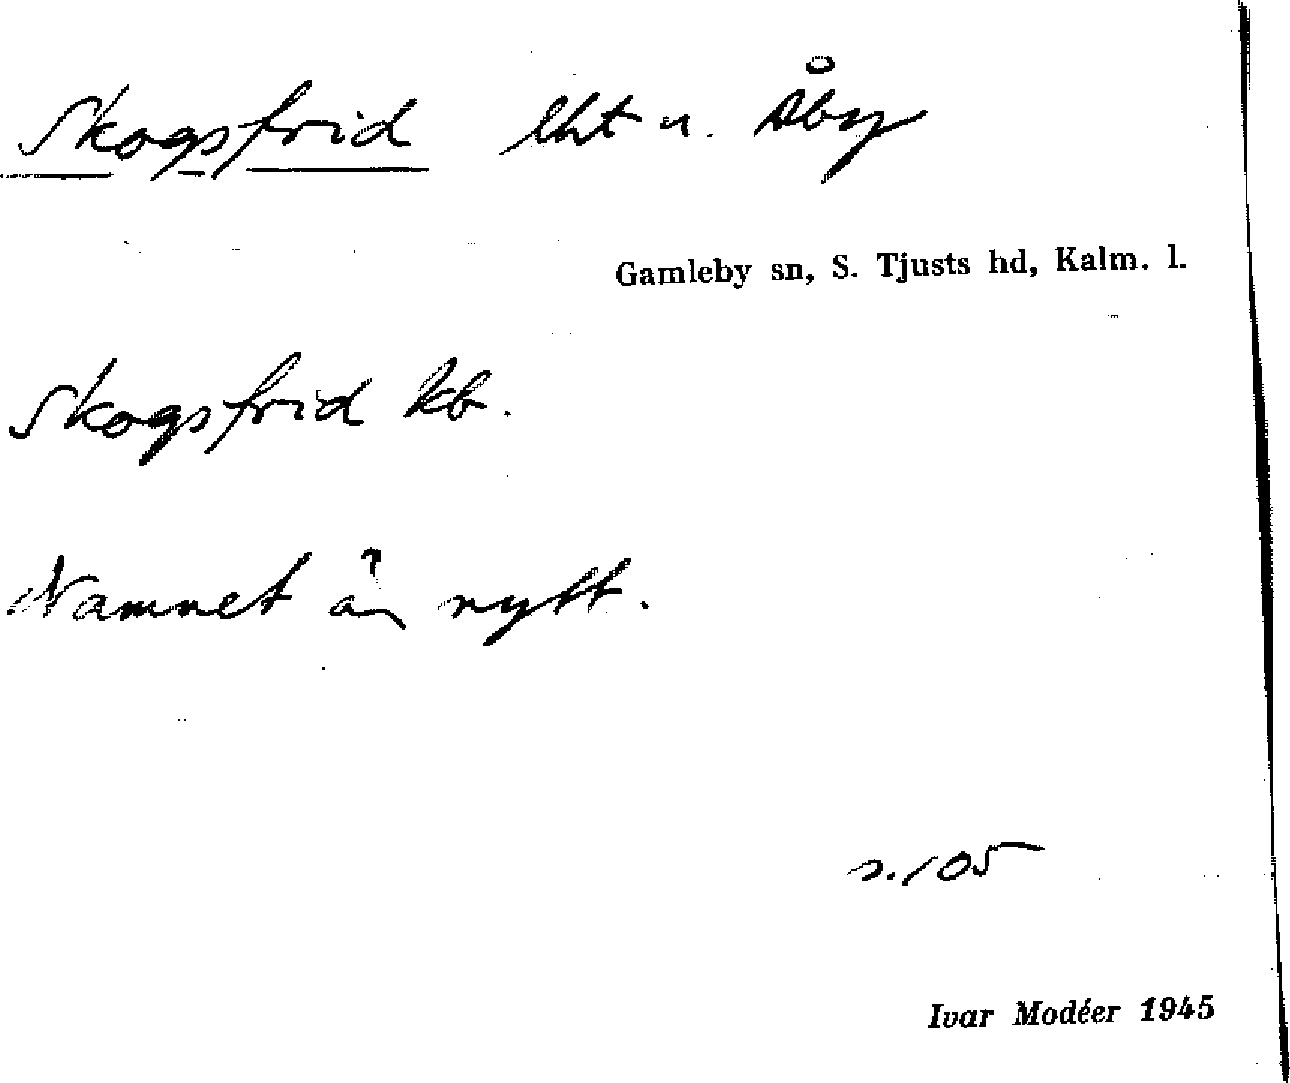 Skogsfrid lht u. Åby
Gamleby sn, S. Tjusts hd, Kalm. l.
Skogsfrid kb.
Namnet är nytt.
s. 105
Ivar Modéer 1945